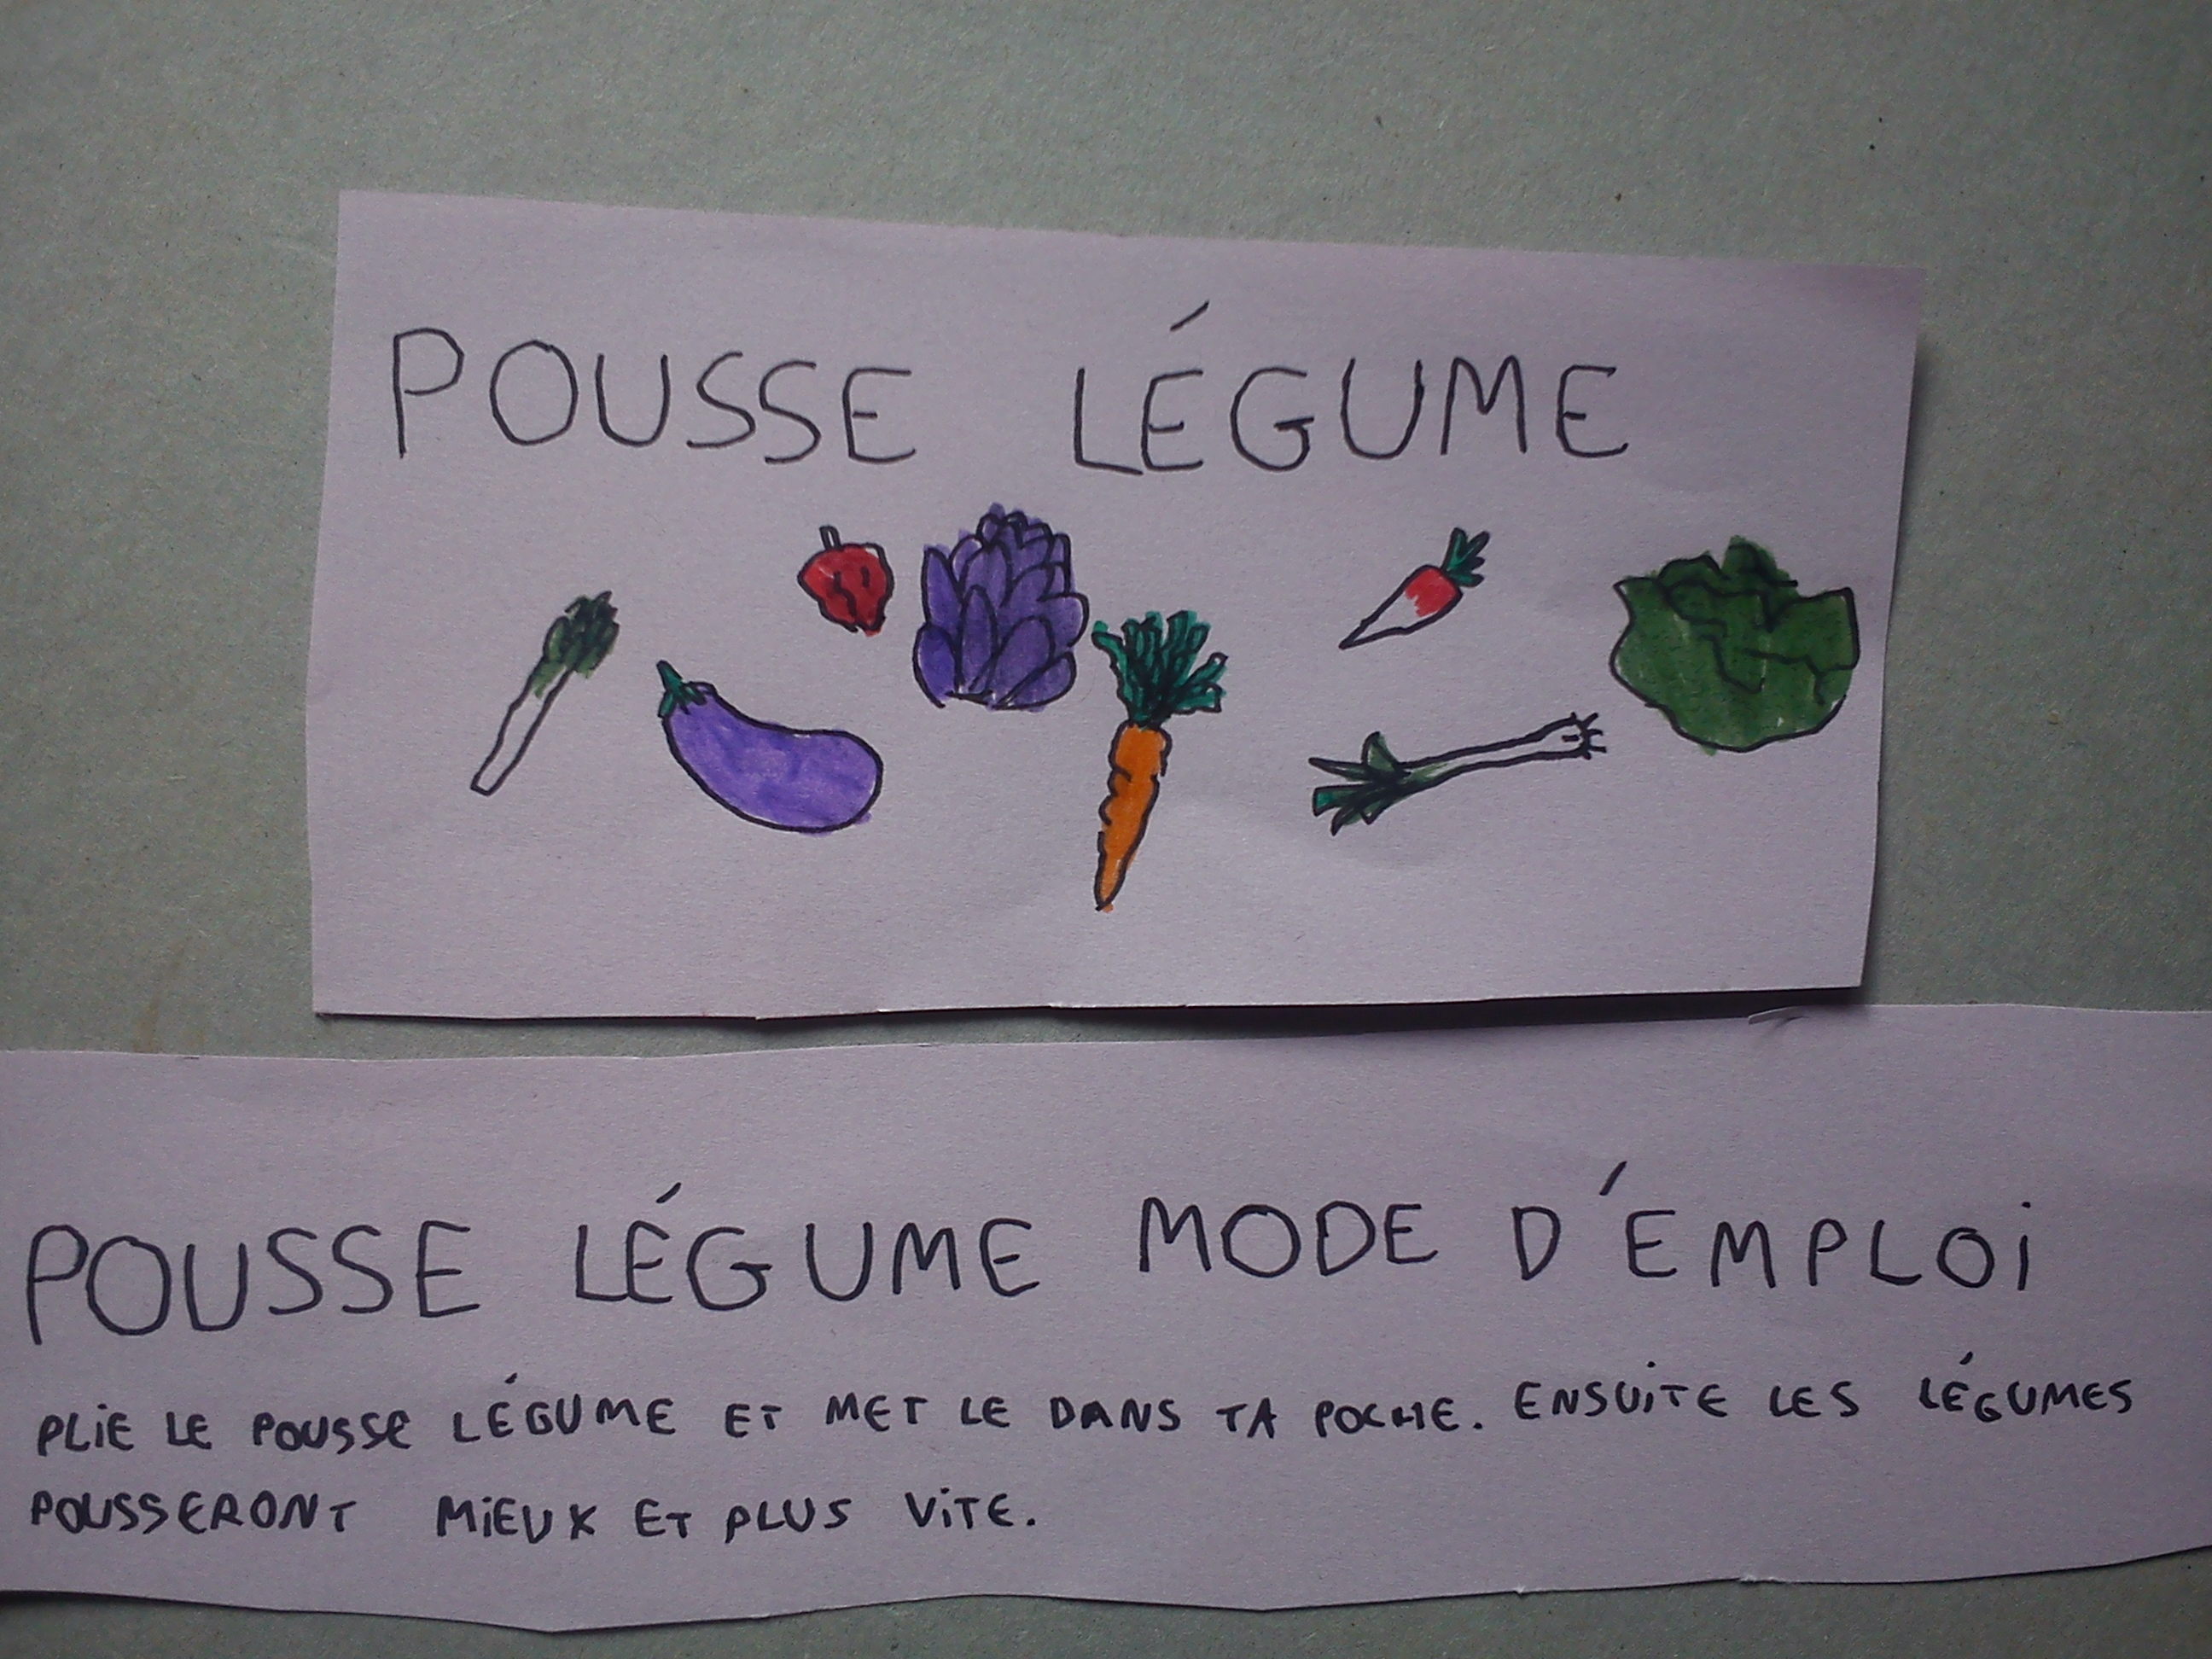 POUSSE LÉGUME
POUSSE LÉGUME MODE D'EMPLOi
PLiE LE POUSSE LÉGUME ET MET LE DANS TA POCHE. ENSUiTE LES LÉGUMES
POUSSERONT MiEUX ET PLUS ViTE.